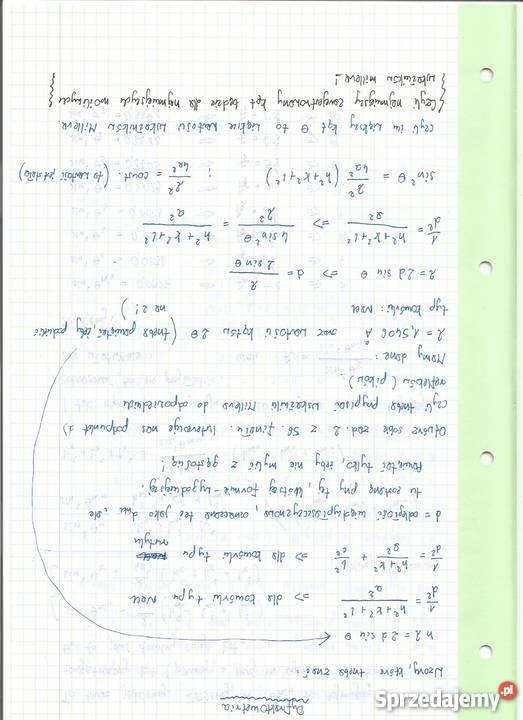 Dyfraktometria
Wzory, które trzeba znać:
nλ = 2d sin θ
1/d² = (h²+k²+l²)/a² ⇒ dla komórki typu NaCl
1/d² = (h²+k²)/a² + l²/c² ⇒ dla komórki typu rutylu
d = odległość międzypłaszczyznowa, oznaczana też jako dhkl, ale
tu zostanę przy tej krótszej formie - wygodniejszej.
Pamiętać tylko, żeby nie mylić z gęstością!
Otwórz sobie zad. 2 z 56 finału. Interesuje nas podpunkt a)
czyli trzeba przypisać wskaźniki Millera do odpowiednich
refleksów (pików).
Mamy dane:
λ = 1,5406 Å oraz wartości kątów 2θ (trzeba pamiętać, żeby podzielić
typ komórki: NaCl na 2!)
λ = 2d sin θ ⇒ d = λ/(2 sin θ)
1/d² = (h²+k²+l²)/a² ⇒ 4 sin²θ/λ² = (h²+k²+l²)/a²
sin²θ = λ²/4a² (h²+k²+l²) ; λ²/4a² = const. (to wartość jest stała)
czyli im większy kąt θ to większe wartości wskaźników Millera.
{Czyli najmniejszy zaobserwowany kąt będzie dla najmniejszych możliwych
wskaźników Millera!}
Sprzedajemy.pl